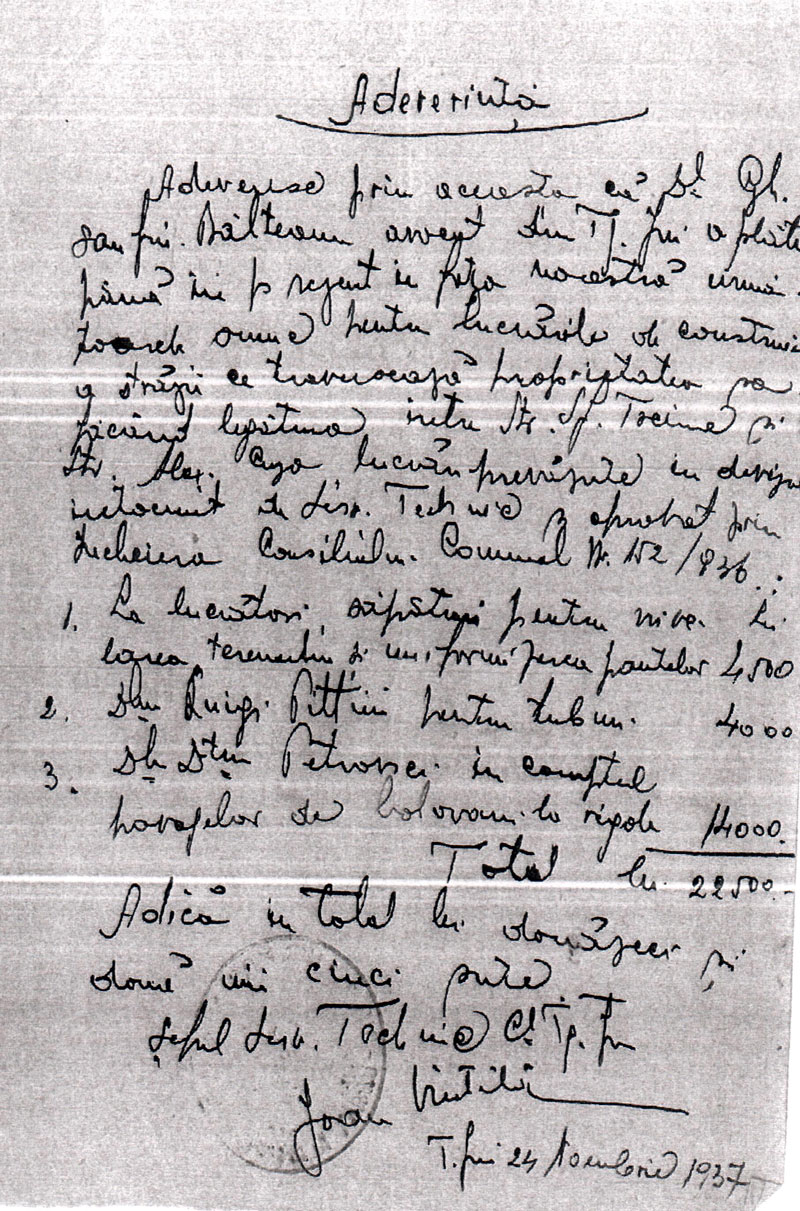 Adeverință
Adeveresc prin aceasta că Dl Gh.
Bălteanu avocat din Tg. Jiu a plăti
până în prezent în fața noastră urmă-
toarele sume pentru lucrările de construi
a străzii ce traversează proprietatea sa
făcând legătura între Str. Sf. Treime și
Str. Alex. Cuza lucrări prevăzute în devizu
întocmit de Serv. Technic și aprobat prin
Încheierea Consiliului Comunal Nr. 152/936.:
1. La lucrători, săpături pentru nive- Lei
larea terenului și uniformizarea pantelor 4500
2. Dlui Luigi Pittini pentru tuburi. 4000
3. Petrovici în comptul
pavagelor de bolovani la rigole 14000.
Total lei 22500.-
Adică în total lei douăzeci și
două mii cinci sute
Șeful Serv. Technic C. Tg. Jiu
Ioan
T. Jiu 24 Noembrie 1937